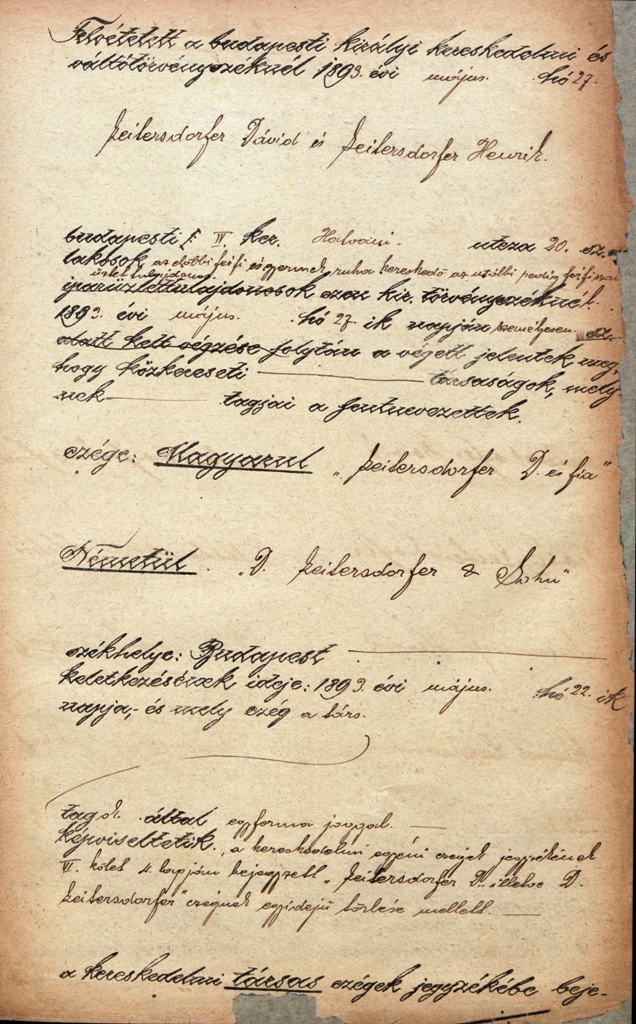 Felvétetett a budapesti királyi kereskedelmi és
váltótörvényszéknél 1893. évi május. hó 27.
Zeitersdorfer Dávid és Zeitersdorfer Henrik.
budapesti IV ker. Hatvani. utcza 20. sz.
lakosok, az előbbi férfi és gyermek ruha kereskedő az utóbbi pedig férfi
üzlettulajdonos
iparüzlettulajdonosok ezen kir. törvényszéknél
1893. évi május. hó 27. ik napján személyesen
alatt kelt végzése folytán a végett jelentek meg,
hogy közkereseti társaságok, mely
nek tagjai a fentnevezettek.
czége: Magyarul „Zeitersdorfer D. és fia"
Németül. „D. Zeitersdorfer & Sohn"
székhelye: Budapest
keletkezésének ideje: 1893. évi május. hó 22. ik
napja,- és mely czég a társ.
tagok által egyforma joggal.
képviseltetik, a kereskedelmi egyéni czégek jegyzékének
kötet 4. lapján bejegyzett „Zeitersdorfer D. illetve D.
Zeitersdorfer" czégnek egyidejű törlése mellett.
a kereskedelmi társas czégek jegyzékébe beje-